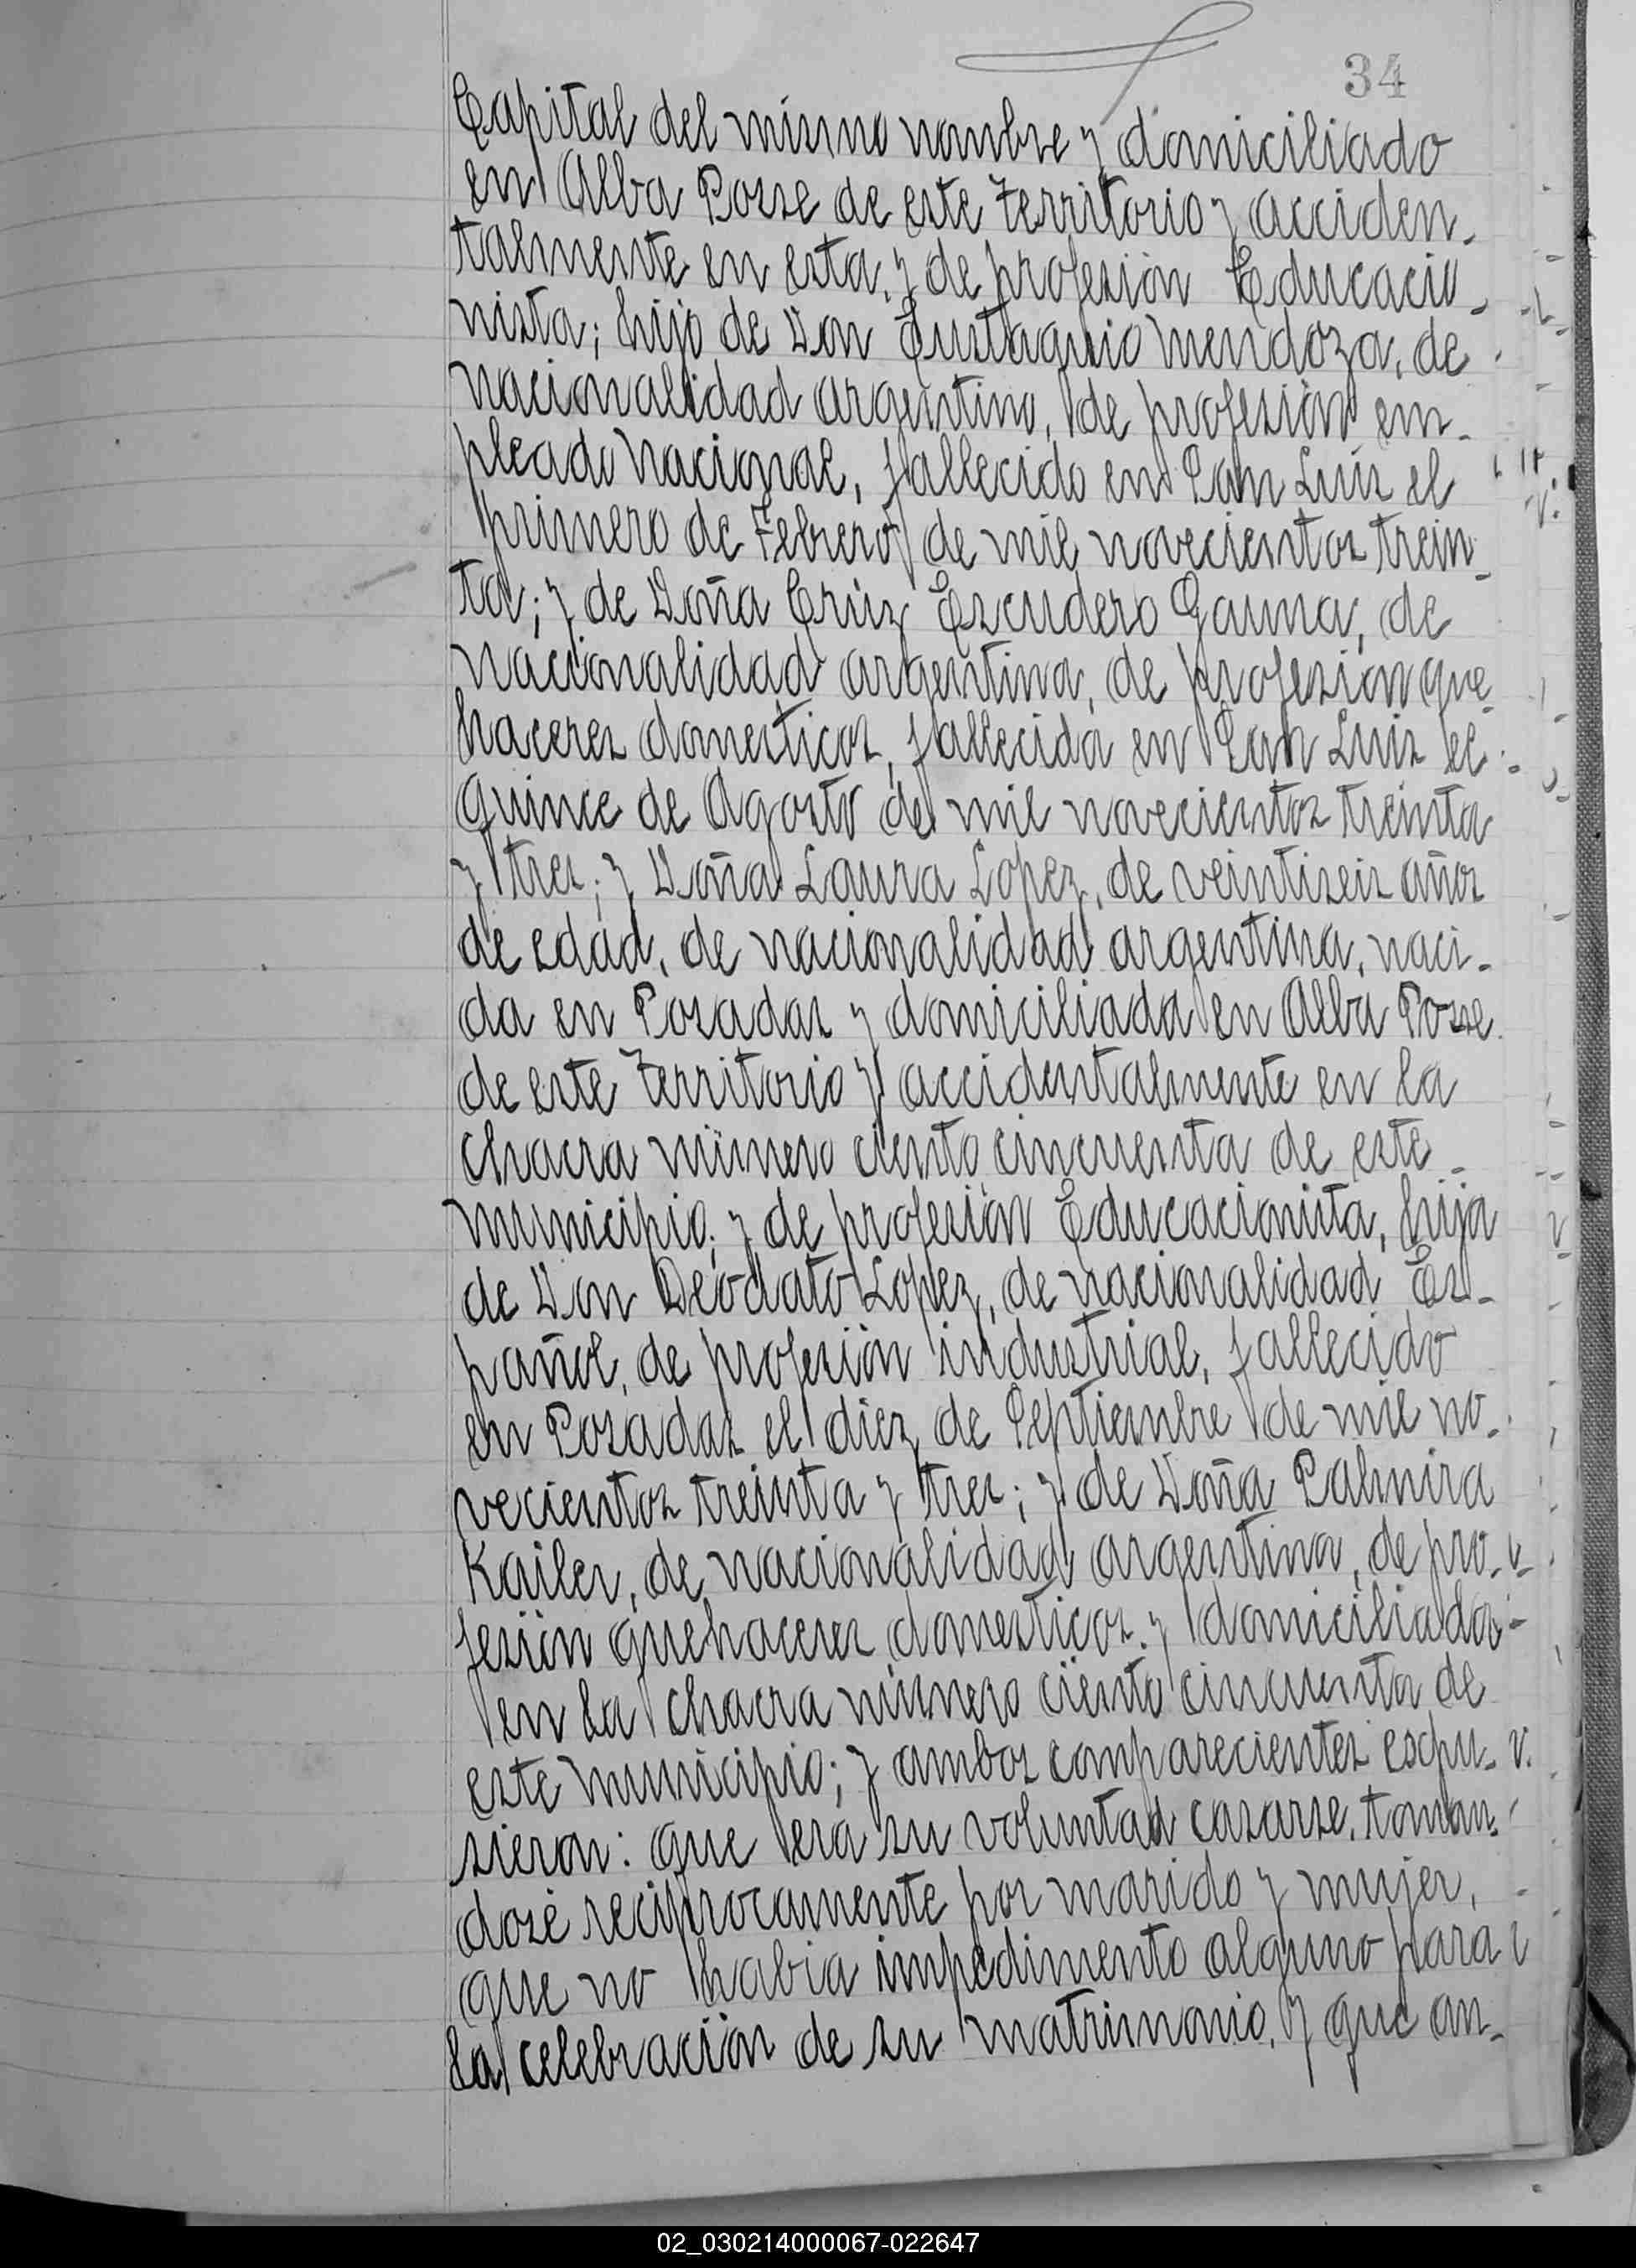 34
Capital del mismo nombre y domiciliado
en Alba Posse de este Territorio y acciden-
talmente en esta, y de profesión Educacio-
nista; hijo de Don Eustaquio Mendoza, de
nacionalidad argentino, de profesión em-
pleado Nacional, fallecido en San Luis el
primero de Febrero de mil novecientos trein-
ta; y de Doña Cruz Escudero Gauna, de
nacionalidad argentina, de profesión que-
haceres domesticos, fallecida en San Luis el
quince de Agosto de mil novecientos treinta
y tres; y Doña Laura Lopez, de veintiseis años
de edad, de nacionalidad argentina, naci-
da en Posadas y domiciliada en Alba Posse
de este Territorio y accidentalmente en la
chacra número ciento cincuenta de este
municipio; y de profesión Educacionista, hija
de Don Deodato Lopez, de nacionalidad Es-
pañol, de profesión industrial, fallecido
en Posadas el diez de Septiembre de mil no-
vecientos treinta y tres; y de Doña Palmira
Kailer, de nacionalidad argentina, de pro-
fesión quehaceres domesticos y domiciliados
en la chacra número ciento cincuenta de
este municipio; y ambos comparecientes espu-
sieron: que era su voluntad casarse, toman-
dose reciprocamente por marido y mujer,
que no habia impedimento alguno para
la celebración de su matrimonio, y que an-
02_030214000067-022647